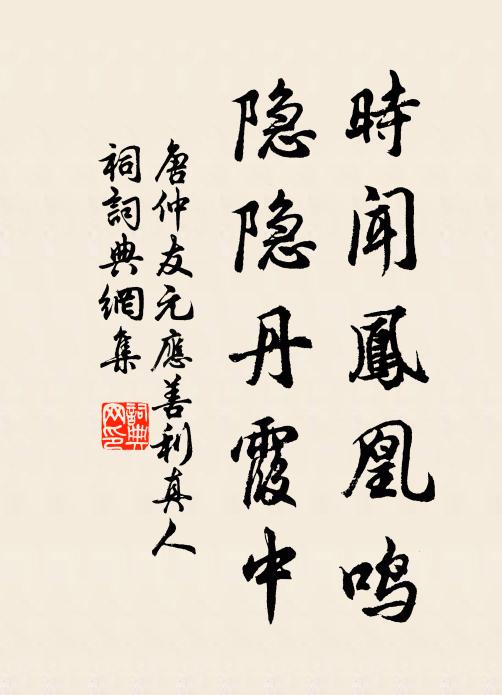 時闻鳳凰鸣
隐隐丹霞中
唐仲友元應善利真人
祠詞典網集
詞典网印